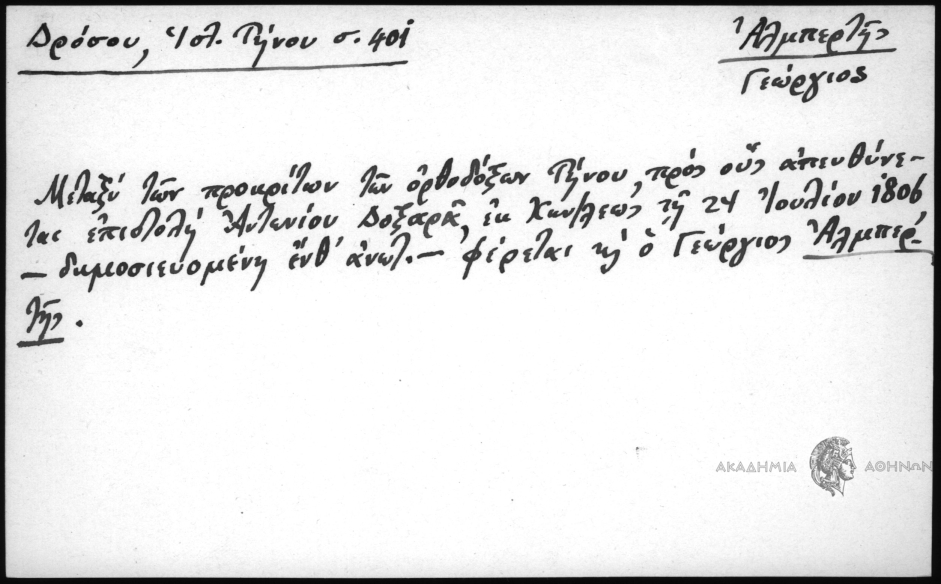 Δρόσου, Ἱστ. Τήνου σ. 401
Ἀλμπερτῆς
Γεώργιος
Μεταξὺ τῶν προκρίτων τῶν ὀρθοδόξων Τήνου, πρὸς οὓς ἀπευθύνε-
ται ἐπιστολὴ Ἀντωνίου Δοξαρᾶ, ἐκ Κων/λεως τῇ 24 Ἰουλίου 1806
— δημοσιευομένη ἔνθ' ἀνωτ. — φέρεται κὴ ὁ Γεώργιος Ἀλμπερ-
τῆς.
ΑΚΑΔΗΜΙΑ ΑΘΗΝΩΝ